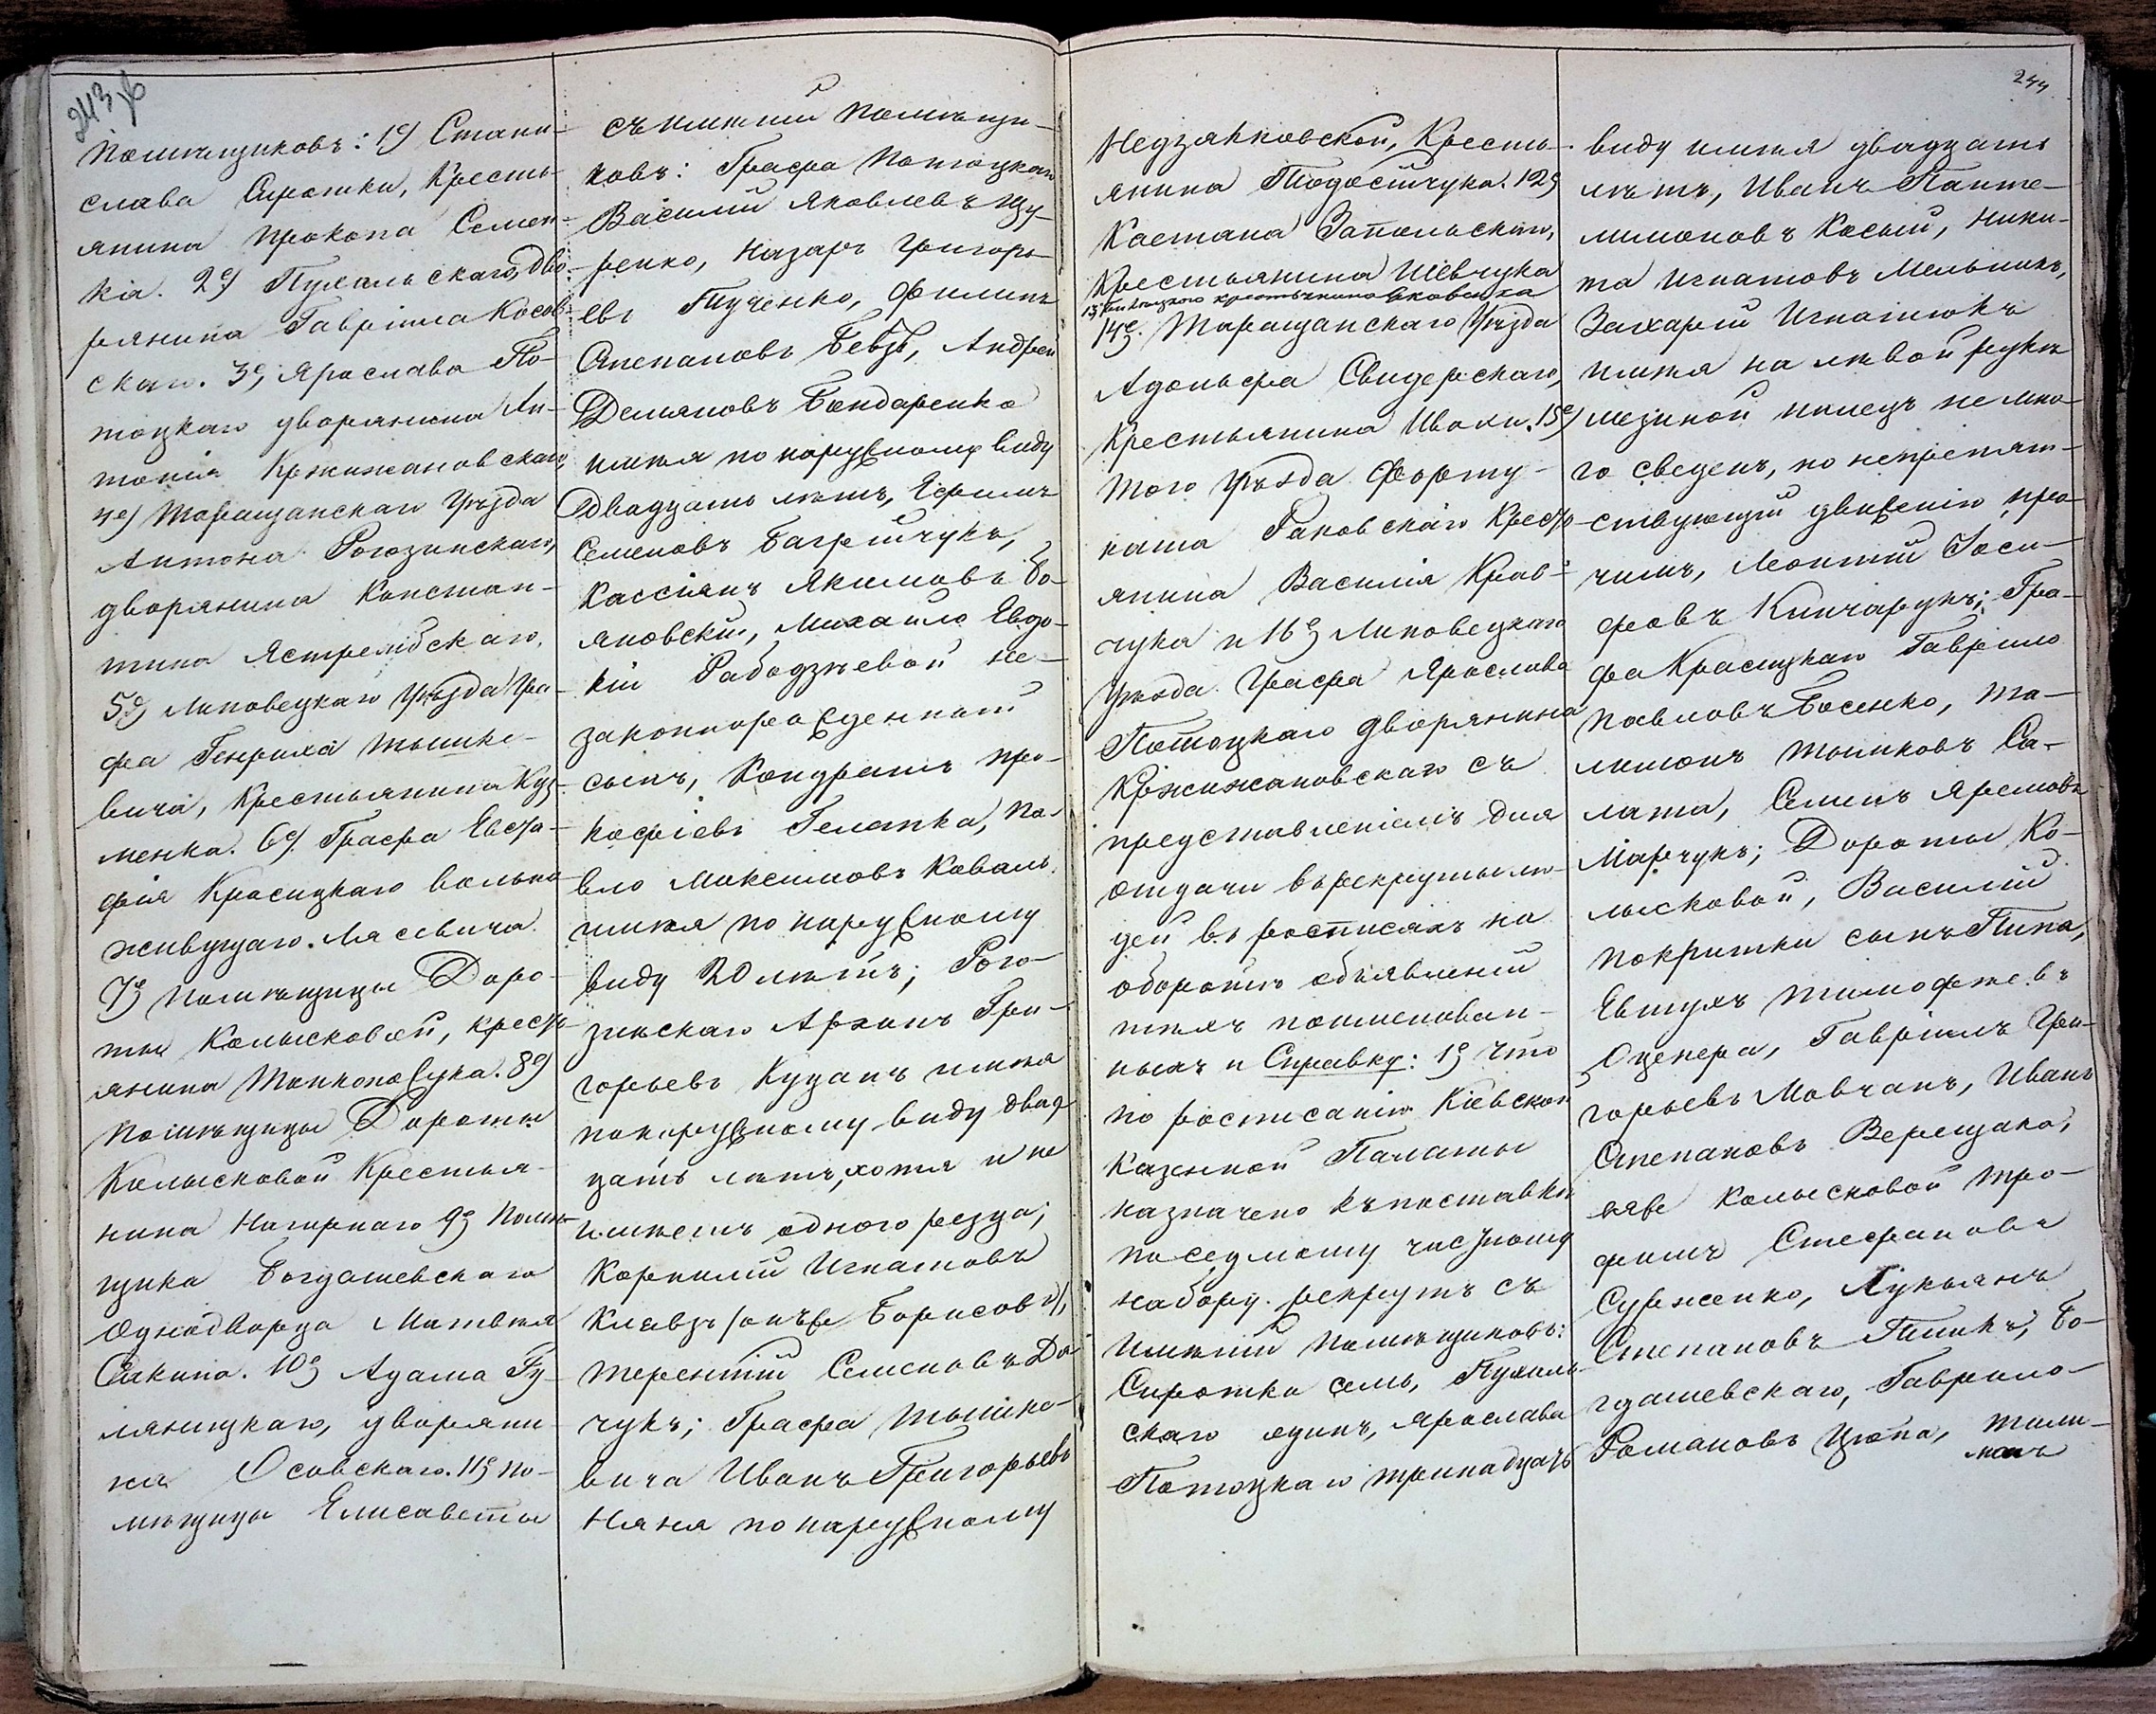 243 об
Помѣщиковъ: 1е) Стани-
слава Сиротки, Кресть-
янина Прокопа Семен-
ка. 2е) Пухальскаго, дво-
рянина Гавріила Косов-
скаго. 3е, Ярослава По-
тоцкаго дворянина Ан-
тонія Кржижановскаго,
4е) Таращанскаго Уѣзда
Антона Рогозинскаго,
дворянина Констан-
тина Ястрембскаго.
5е) Липовецкаго Уѣзда Гра-
фа Генриха Тышке-
вича, Крестьянина Куз-
менка. 6е) Графа Евста-
фія Красицкаго вольно
живущаго Лясевича.
7е) Помѣщицы Доро-
ты Колысковой, кресть-
янина 8е)
Помѣщицы Дороты
Колысковой Крестья-
нина Нагирнаго 9е Помѣ-
щика Богдашевскаго
Однодворца Матвѣя
Сакина. 10е Адама Гу-
ляницкаго, дворяни-
на Осовскаго. 11е По-
мѣщицы Елисаветы
съ имѣній помѣщи-
ковъ: Графа Потоцкаго
Василій Яковлевъ Цу-
ренко, Назаръ Григорь-
евъ Филипъ
Степановъ Бевзъ, Андрей
Демяновъ Бондаренко
имѣя по наружному виду
Двадцать лѣтъ, Ефимъ
Семеновъ Багрійчукъ,
Кассіянъ Якимовъ Бо-
яновскій, Михайло Евдо-
кіи Рабодзѣевой не-
законнорожденный
сынъ, Кондратъ Про-
кофіевъ Гелетка, Па-
вло Максимовъ Коваль
имѣя по наружному
виду 20 лѣтъ; Рого-
зинскаго Архипъ Гри-
горьевъ Куцанъ имѣя
по наружному виду двад-
цать лѣтъ, хотя и не
имѣетъ одного резца;
Корнилій Игнатовъ
Клевзъ /онъ же Борисовъ/,
Терентій Семеновъ Да-
чукъ; Графа Тышке-
вича Иванъ Григорьевъ
Няня по наружному
244
Недзялковской, Кресть-
янина Тодосійчука. 12е
Каетана Запольскаго,
Крестьянина Шевчука
13 крестьянина Яковенка
14е. Таращанскаго Уѣзда
Адольфа Свидерскаго,
Крестьянина Ивахи. 15е)
того Уѣзда Форту-
ната Раковскаго Кресть-
янина Василія Крав-
чука и 16е Липовецкаго
Уѣзда Графа Ярослава
Потоцкаго дворянина
Кржижановскаго съ
представленіемъ для
отдачи въ рекруты лю-
дей въ росписяхъ на
оборотѣ объявленій
тѣхъ поименован-
ныхъ и Справку: 1е Что
по росписанію Кіевской
Казенной Палаты
назначено къ поставкѣ
по седмому частному
набору рекрутъ съ
имѣній Помѣщиковъ:
Сиротки семь, Пухаль-
скаго одинъ, Ярослава
Потоцкаго тринадцать
виду имѣя двадцать
лѣтъ, Иванъ Панте-
лимоновъ Косый, Ники-
та Игнатовъ Мельникъ,
Захарій Игнатюкъ
имѣя на лѣвой рукѣ
мезиной палецъ не мно-
го сведенъ, но непрепят-
ствующій движенію про-
чимъ, Леонтій Іоси-
фовъ Кинчарукъ; Гра-
фа Красицкаго Гаврило
Павловъ Босенко, Фи-
лимонъ Са-
лата, Семенъ Яремовъ
Марчукъ; Дороты Ко-
лысковой, Василій
покритки сынъ Типа,
Евтухъ Тимофѣевъ
Оцепера, Гавріилъ Гри-
горьевъ Мовчанъ, Иванъ
Степановъ Верещака,
ея же Колысковой Тро-
фимъ Стефановъ
Сурженко, Лукьянъ
Степановъ Бо-
гдашевскаго, Гаврило
Романовъ Цюпа, Тимо-